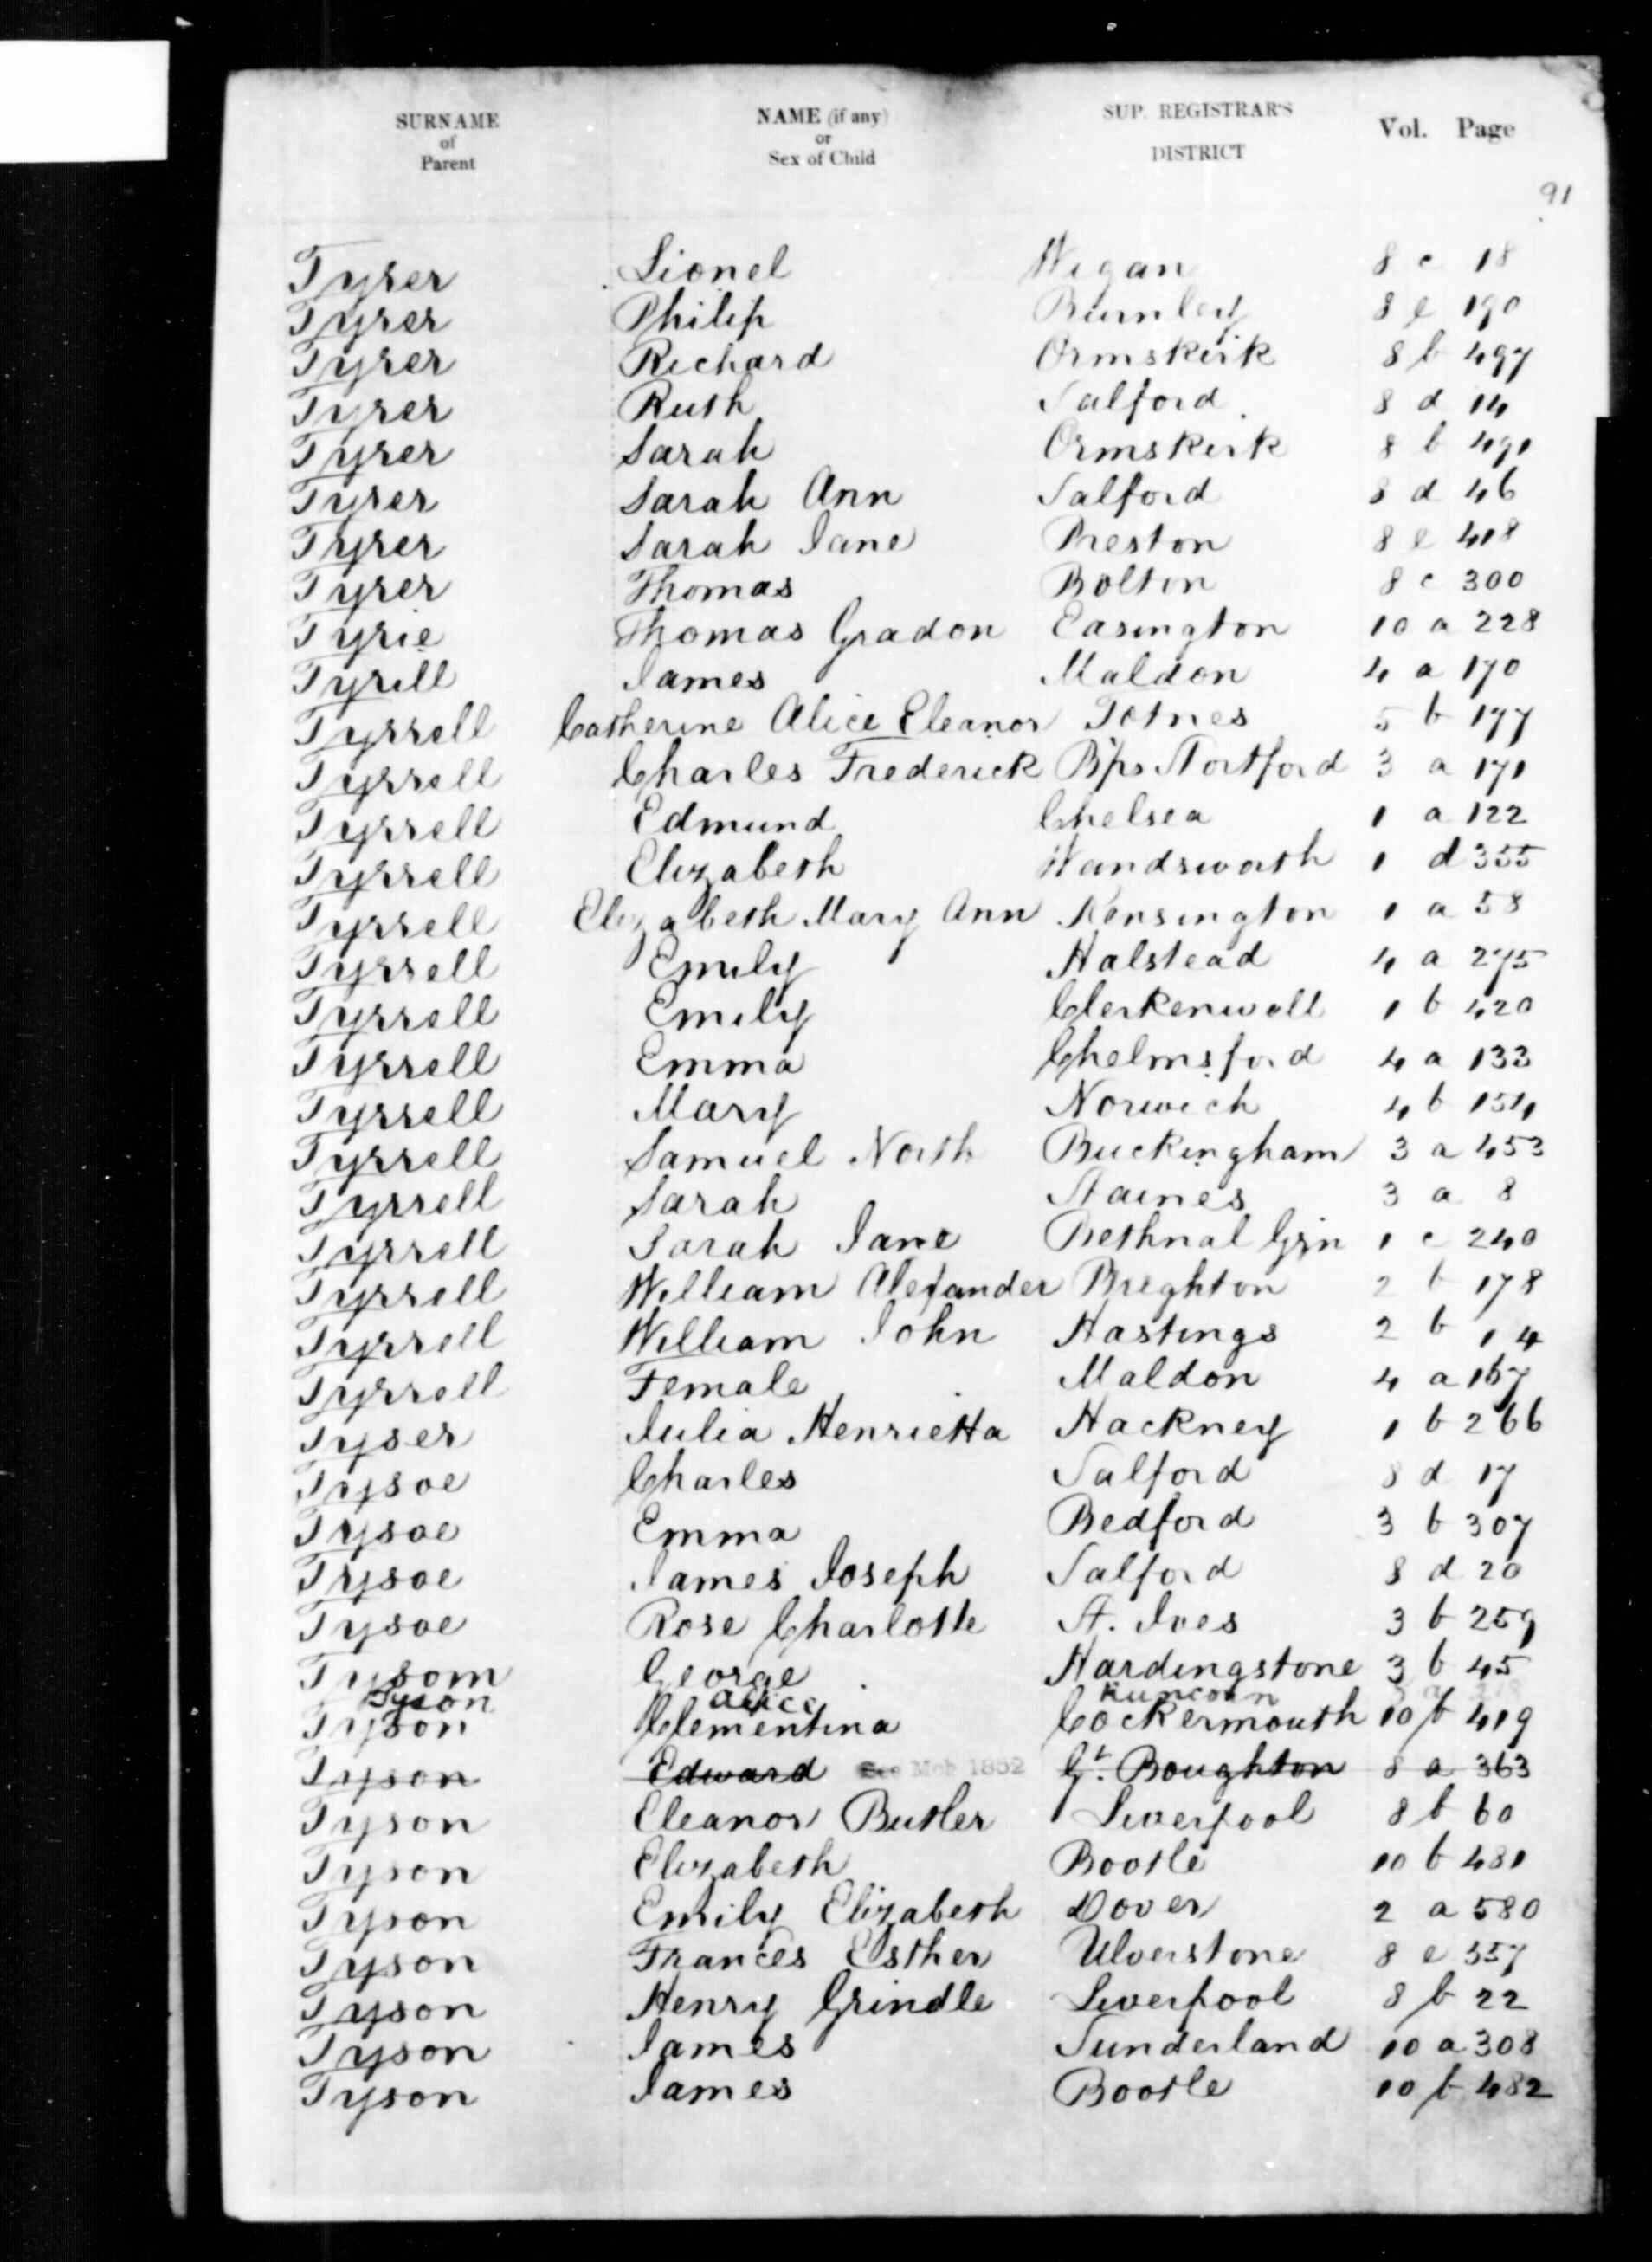 SURNAME of Parent NAME (if any) or Sex of Child SUP. REGISTRAR'S DISTRICT Vol. Page
91
Tyrer Lionel Wigan 8 c 18
Tyrer Philip Burnley 8 e 190
Tyrer Richard Ormskirk 8 b 497
Tyrer Ruth Salford 8 d 14
Tyrer Sarah Ormskirk 8 b 491
Tyrer Sarah Ann Salford 8 d 46
Tyrer Sarah Jane Preston 8 e 418
Tyrer Thomas Bolton 8 c 300
Tyrie Thomas Gradon Easington 10 a 228
Tyrill James Maldon 4 a 170
Tyrrell Catherine Alice Eleanor Totnes 5 b 177
Tyrrell Charles Frederick Bps Stortford 3 a 171
Tyrrell Edmund Chelsea 1 a 122
Tyrrell Elizabeth Wandsworth 1 d 355
Tyrrell Elizabeth Mary Ann Kensington 1 a 58
Tyrrell Emily Halstead 4 a 275
Tyrrell Emily Clerkenwell 1 b 420
Tyrrell Emma Chelmsford 4 a 133
Tyrrell Mary Norwich 4 b 154
Tyrrell Samuel North Buckingham 3 a 453
Tyrrell Sarah Staines 3 a 8
Tyrrell Sarah Jane Bethnal Grn 1 c 240
Tyrrell William Alexander Brighton 2 b 178
Tyrrell William John Hastings 2 b 14
Tyrrell Female Maldon 4 a 167
Tyser Julia Henrietta Hackney 1 b 266
Tysoe Charles Salford 8 d 17
Tysoe Emma Bedford 3 b 307
Tysoe James Joseph Salford 8 d 20
Tysoe Rose Charlotte St. Ives 3 b 259
Tysom George Hardingstone 3 b 45
Tyson Alice Runcorn
Tyson Clementina Cockermouth 10 b 419
Tyson Edward See Mch 1852 Gt. Boughton 8 a 363
Tyson Eleanor Butler Liverpool 8 b 60
Tyson Elizabeth Bootle 10 b 481
Tyson Emily Elizabeth Dover 2 a 580
Tyson Frances Esther Ulverstone 8 e 557
Tyson Henry Grindle Liverpool 8 b 22
Tyson James Sunderland 10 a 308
Tyson James Bootle 10 b 482